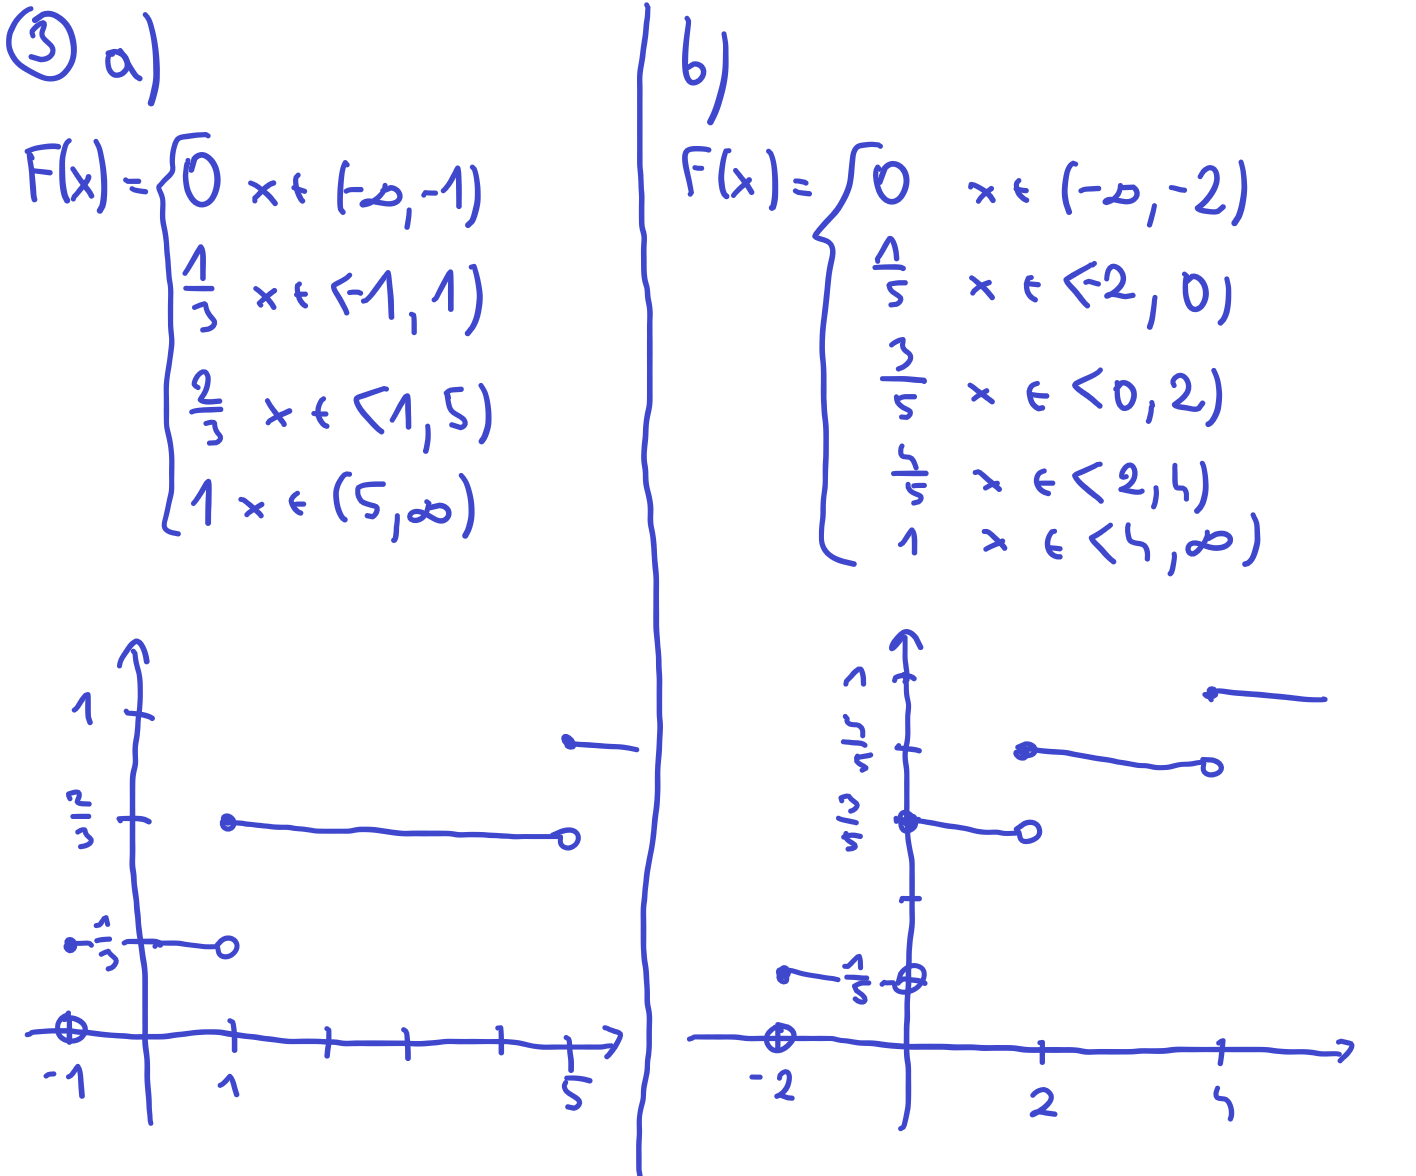 3 a)
F(x) = { 0 x ∈ (-∞, -1)
1/3 x ∈ <-1, 1)
2/3 x ∈ <1, 5)
1 x ∈ (5, ∞)
1
2/3
1/3
-1 1 5
b)
F(x) = { 0 x ∈ (-∞, -2)
1/5 x ∈ <-2, 0)
3/5 x ∈ <0, 2)
4/5 x ∈ <2, 4)
1 x ∈ <4, ∞)
1
4/5
3/5
1/5
-2 2 4